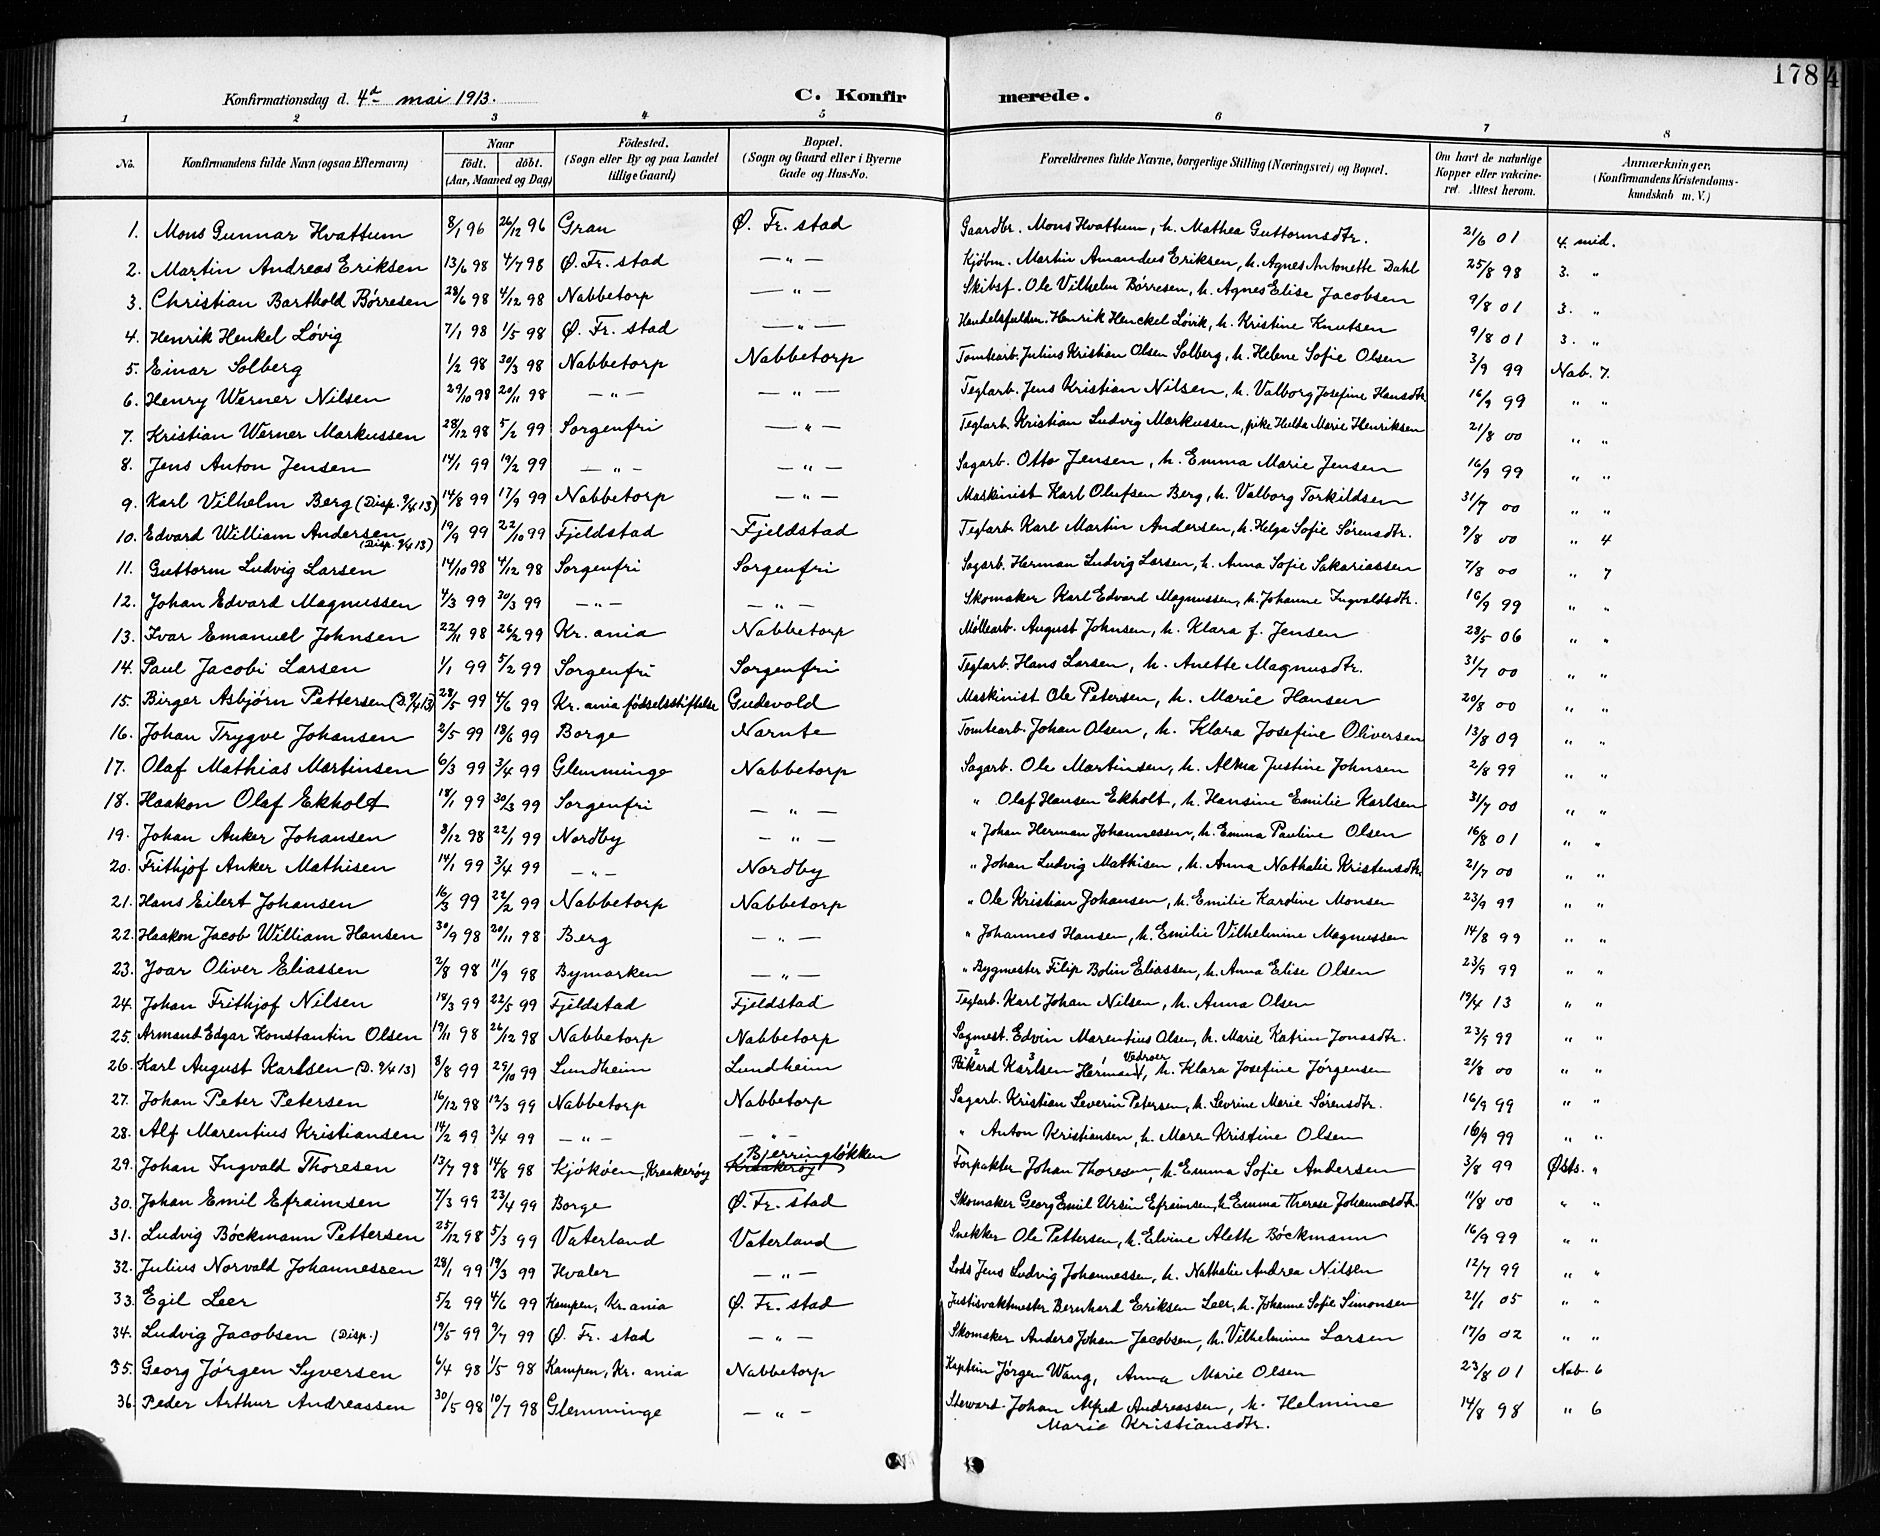 178
4
Konfirmationsdag d. 4de mai 1913.
C. Konfirmerede.
1 2 3 4 5 6 7 8
No. Konfirmandens fulde Navn (ogsaa Efternavn) Naar födt. döbt. (Aar, Maaned og Dag) Födested. (Sogn eller By og paa Landet tillige Gaard) Bopæl. (Sogn og Gaard eller i Byerne Gade og Hus-No. Forældrenes fulde Navne, borgerlige Stilling (Næringsvei) og Bopæl. Om havt de naturlige Kopper eller vakcineret. Attest herom. Anmærkninger. (Konfirmandens Kristendomskundskab m. V.)
1. Mons Gunnar Hvattum 8/1 96 26/12 96 Gran Ø. Fr. stad Gaardbr. Mons Hvattum, h. Mathea Guttormsdtr. 21/6 01 4. mid.
2. Martin Andreas Eriksen 13/6 98 4/7 98 Ø. Fr. stad — " — Kjöbm. Martin Amandus Eriksen, h. Agnes Antonette Dahl 25/8 98 3. "
3. Christian Barthold Børresen 28/6 98 4/12 98 Nabbetorp — " — Skibsf. Ole Vilhelm Børresen, h. Agnes Elise Jacobsen 9/8 01 3. "
4. Henrik Henkel Løvig 7/1 98 1/5 98 Ø. Fr. stad — " — Handelsfuldm. Henrik Henckel Lövik, h. Kristine Knutsen 9/8 01 3. "
5. Einar Solberg 1/2 98 30/3 98 Nabbetorp Nabbetorp Tomtearb. Julius Kristian Olsen Solberg, h. Helene Sofie Olsen 3/9 99 Nab. 7.
6. Henry Werner Nilsen 29/10 98 20/11 98 — " — — " — Teglarb. Jens Kristian Nilsen, h. Valborg Josefine Hansdtr 16/9 99 " "
7. Kristian Werner Markussen 28/12 98 5/2 99 Sorgenfri — " — Teglarb. Kristian Ludvig Markussen, pike Hulda Marie Henriksen 21/8 00 " "
8. Jens Anton Jensen 14/1 99 19/2 99 — " — — " — Sagarb. Otto Jensen, h. Emma Marie Jensen 16/9 99 " "
9. Karl Vilhelm Berg (Disp. 9/4 13) 14/8 99 17/9 99 Nabbetorp — " — Maskinist Karl Olufsen Berg, h. Valborg Torkildsen 31/7 00 " "
10. Edvard William Andersen (Disp. 9/4 13) 19/9 99 22/10 99 Fjeldstad Fjeldstad Teglarb. Karl Martin Andersen, h. Helga Sofie Sørensdtr. 7/8 00 " 4
11. Guttorm Ludvig Larsen 14/10 98 4/12 98 Sorgenfri Sorgenfri Sagarb. Herman Ludvig Larsen, h. Anna Sofie Sakariassen 7/8 00 " 7
12. Johan Edvard Magnussen 4/3 99 30/3 99 — " — — " — Skomaker Karl Edvard Magnussen, h. Johanne Ingvaldsdtr. 16/9 99 " "
13. Ivar Emanuel Johnsen 22/11 98 26/2 99 Kr. ania Nabbetorp Møllearb. August Johnsen, h. Klara f. Jensen 28/5 06 " "
14. Paul Jacobi Larsen 1/1 99 5/2 99 Sorgenfri Sorgenfri Teglarb. Hans Larsen, h. Anette Magnusdtr. 31/7 00 " "
15. Birger Asbjørn Pettersen (D. 9/4 13) 28/5 99 4/6 99 Kr. ania fødselsstiftelse Gudevold Maskinist Ole Petersen, h. Marie Hansen 20/8 00 " "
16. Johan Trygve Johansen 2/5 99 18/6 99 Borge Narnte Tomtearb. Johan Olsen, h. Klara Josefine Oliversen 13/8 09 " "
17. Olaf Mathias Martinsen 6/3 99 3/4 99 Glemminge Nabbetorp Sagarb. Ole Martinsen, h. Alma Justine Johnsen 2/8 99 " "
18. Haakon Olaf Ekholt 18/1 99 30/3 99 Sorgenfri — " — " Olaf Hansen Ekholt, h. Hansine Emilie Karlsen 31/7 00 " "
19. Johan Anker Johansen 8/12 98 22/1 99 Nordby — " — " Johan Herman Johannessen, h. Emma Pauline Olsen 16/8 01 " "
20. Frithjof Anker Mathisen 14/1 99 3/4 99 — " — Nordby " Johan Ludvig Mathisen, h. Anna Nathalie Kristensdtr. 21/7 00 " "
21. Hans Eilert Johansen 16/3 99 22/2 99 Nabbetorp Nabbetorp " Ole Kristian Johansen, h. Emilie Karoline Monsen 23/9 99 " "
22. Haakon Jacob William Hansen 30/9 98 20/11 98 Berg — " — " Johannes Hansen, h. Emilie Vilhelmine Magnussen 14/8 99 " "
23. Joar Oliver Eliassen 2/8 98 11/9 98 Bymarken — " — " Bygmester Filip Bolin Eliassen, h. Anna Elise Olsen 23/9 99 " "
24. Johan Frithjof Nilsen 18/3 99 22/5 99 Fjeldstad Fjeldstad Teglarb. Karl Johan Nilsen, h. Anna Olsen 19/4 13 " "
25. Armand Edgar Konstantin Olsen 19/11 98 26/12 98 Nabbetorp Nabbetorp Sagmest. Edvin Marentius Olsen, h. Marie Katrin Jonasdtr. 23/9 99 " "
26. Karl August Karlsen (D. 9/4 13) 8/8 99 29/10 99 Lundheim Lundheim Rikard Karlsen Herman, h. Klara Josefine Jørgensen 21/8 00 " "
27. Johan Peter Petersen 16/12 98 12/3 99 Nabbetorp Nabbetorp Sagarb. Kristian Severin Petersen, h. Sevrine Marie Sørensdtr. 16/9 99 " "
28. Alf Marentius Kristiansen 14/2 99 3/4 99 — " — — " — " Anton Kristiansen, h. Maren Kristine Olsen 16/9 99 " "
29. Johan Ingvald Thoresen 13/7 98 14/8 98 Kjøkøen, Kraakerøy Kraakerøy Bjerringløkken Forpakter Johan Thoresen, h. Emma Sofie Andersen 3/8 99 Østs. "
30. Johan Emil Efraimsen 7/3 99 23/4 99 Borge Ø. Fr. stad Skomaker Georg Emil Ursin Efraimsen, h. Emma Therese Johannesdtr. 11/8 00 " "
31. Ludvig Böckmann Pettersen 25/12 98 5/3 99 Vaterland Vaterland Snekker Ole Pettersen, h. Elvine Alette Böckmann 16/9 99 " "
32. Julius Norvald Johannessen 28/1 99 19/3 99 Hvaler — " — Lods Jens Ludvig Johannessen, h. Nathalie Andrea Nilsen 12/7 99 " "
33. Egil Leer 5/2 99 4/6 99 Kampen, Kr. ania Ø. Fr. stad Justisvaktmester Bernhard Eriksen Leer, h. Johanne Sofie Simonsen 21/1 05 " "
34. Ludvig Jacobsen (Disp.) 19/5 99 9/7 99 Ø. Fr. stad — " — Skomaker Anders Johan Jacobsen, h. Vilhelmine Larsen 17/0 02 " "
35. Georg Jørgen Syversen 6/4 98 1/5 98 Kampen, Kr. ania Nabbetorp Kaptein Jørgen Wang, Anna Marie Olsen 23/8 01 Nab. 6
36. Peder Arthur Andreassen 30/5 98 10/7 98 Glemminge — " — Steward Johan Alfred Andreassen, h. Helmine 14/8 98 " 6
Marie Kristiansdtr.